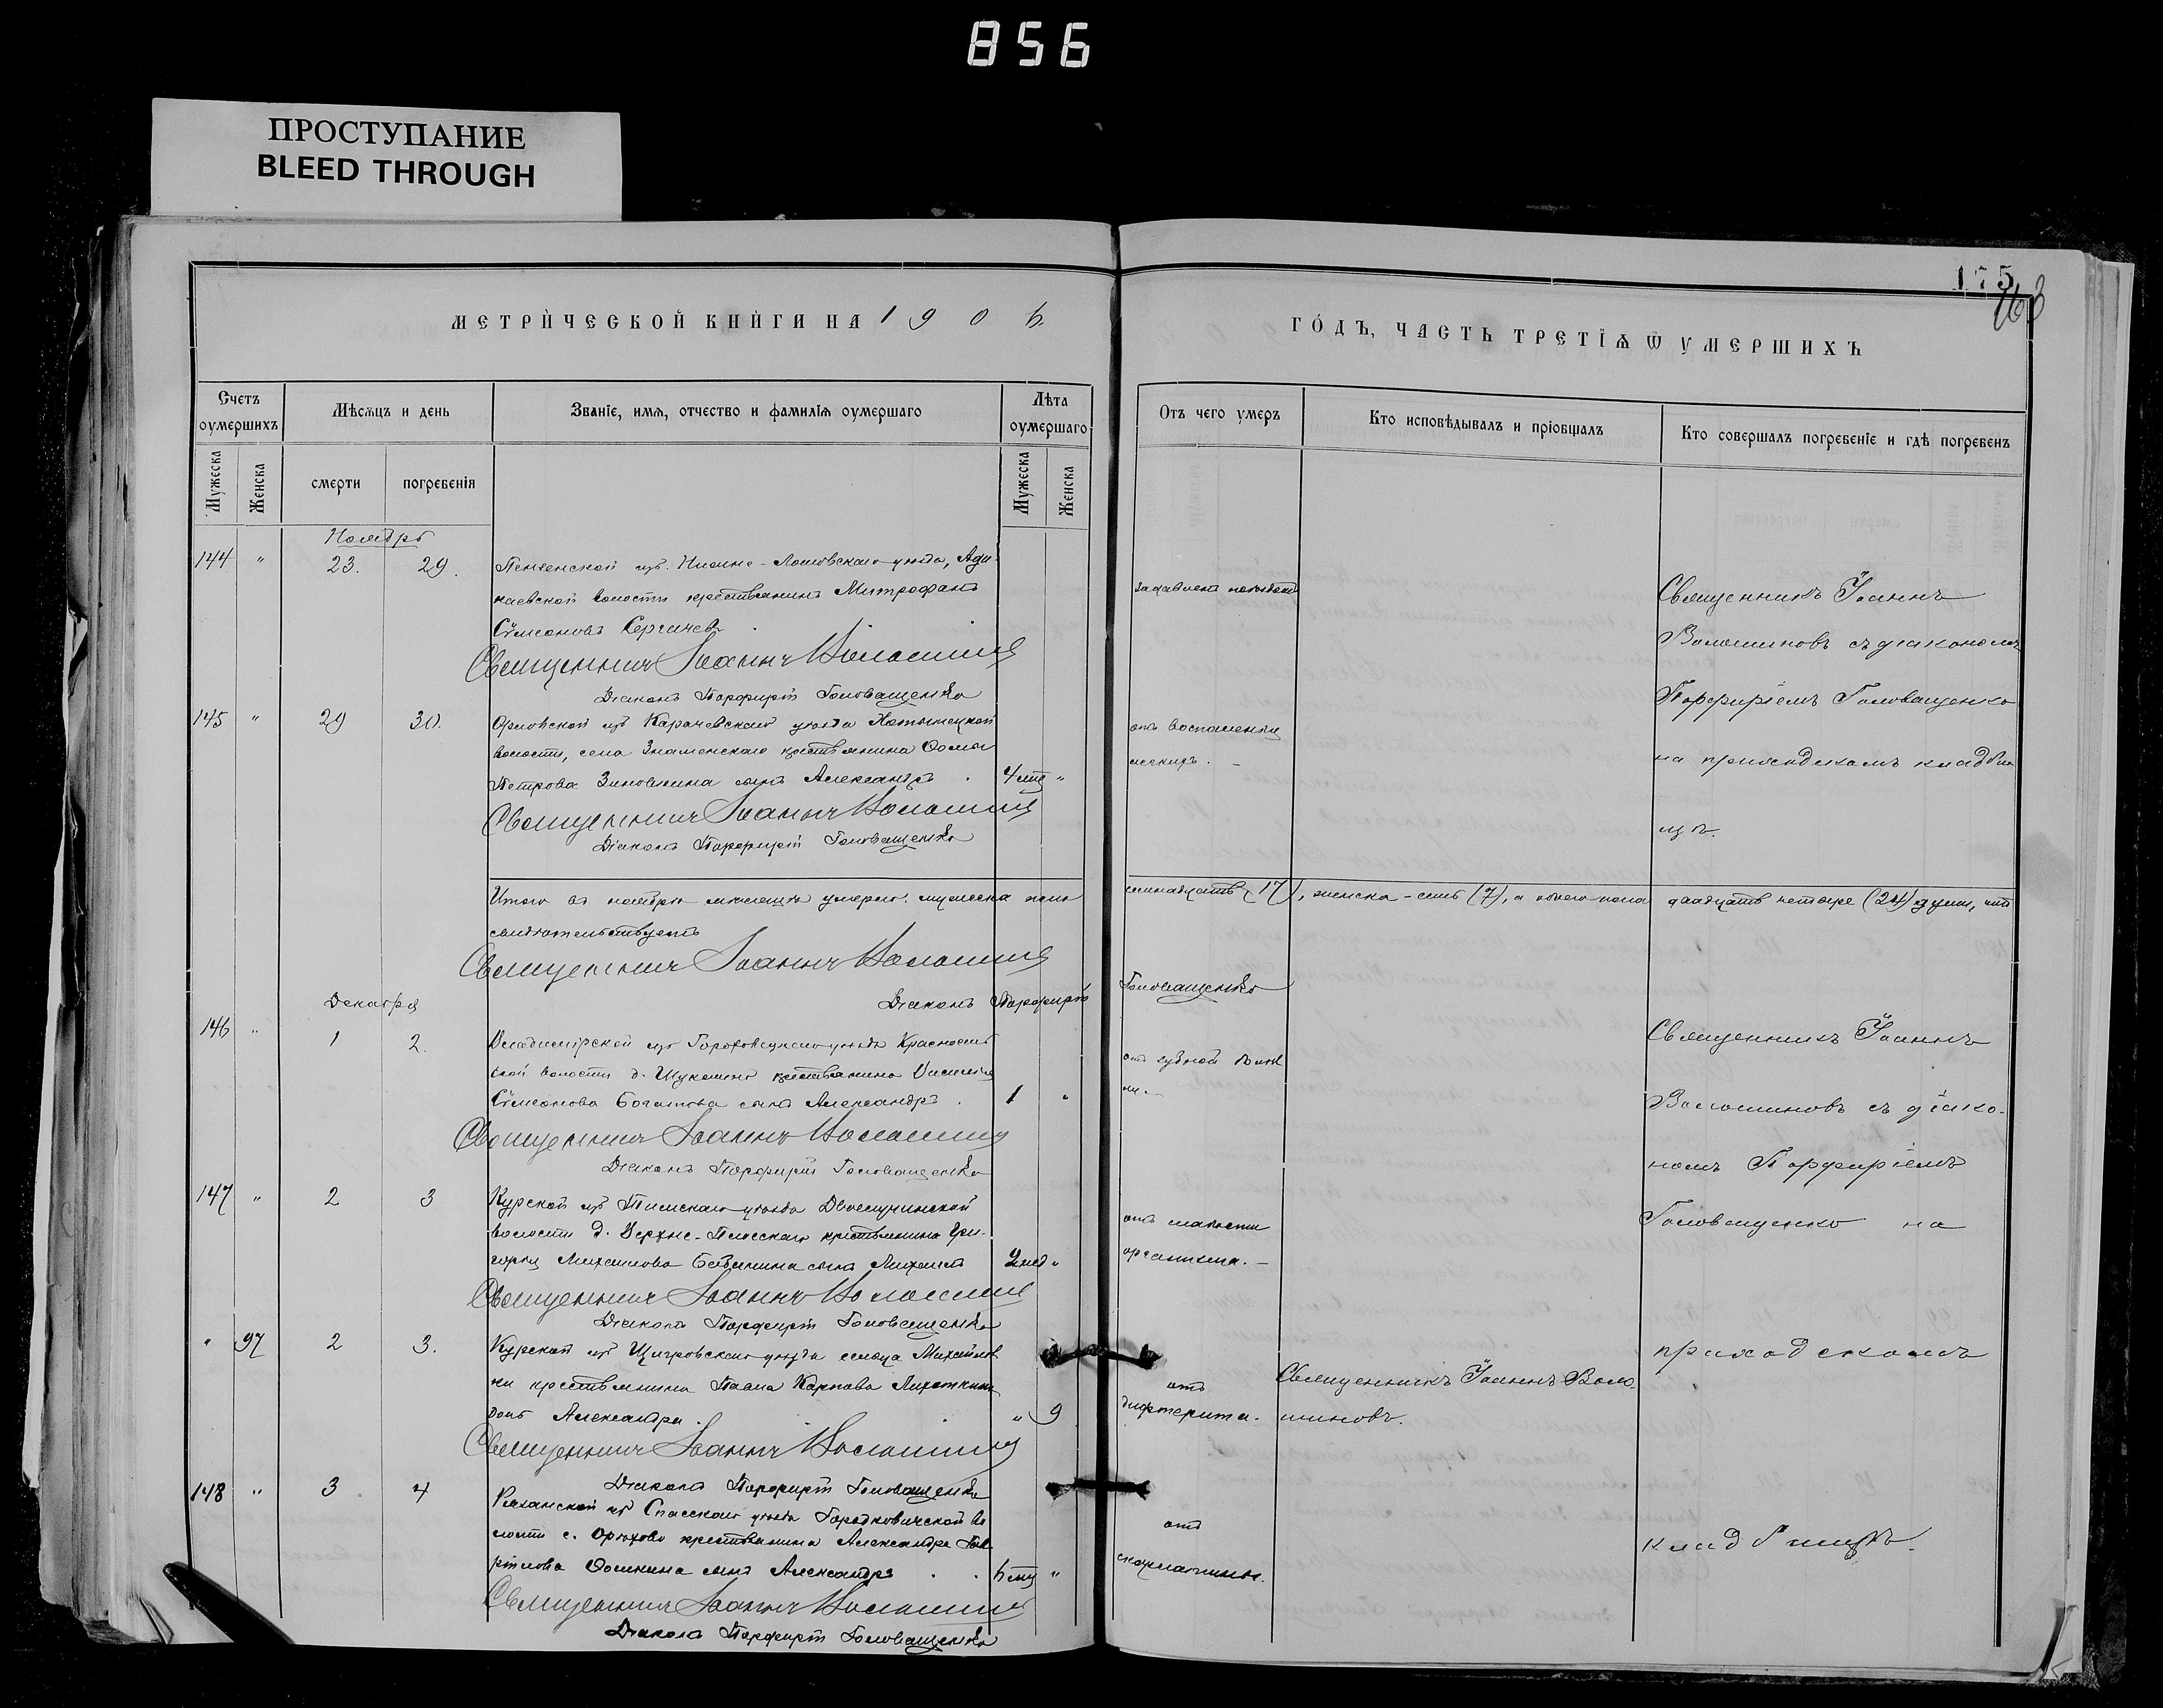 856
ПРОСТУПАНИЕ
BLEED THROUGH
175
163
МЕТРИЧЕСКОЙ КНИГИ НА 1906
ГОДЪ, ЧАСТЬ ТРЕТІѦ Ѿ УМЕРШИХЪ
Счетъ оумершихъ
Мѣсѧцъ и день
Званіе, имѧ, отчество и фамиліѧ оумершаго
Лѣта оумершаго
Отъ чего умеръ
Кто исповѣдывалъ и пріобщалъ
Кто совершалъ погребеніе и гдѣ погребенъ
Мужеска
Женска
смерти
погребенія
Мужеска
Женска
Ноябрь
144 " 23. 29. Пензенской губ. Нижне-Ломовскаго уѣзда,
волости крестьянинъ Митрофанъ
Сѵмеоновъ Сергачев
задавленъ поѣздомъ
Священникъ Іоаннъ
Волошиновъ съ діакономъ
Порфиріемъ Головащенко
на приходскомъ кладби
щѣ.
Священникъ Іоаннъ Волошинов
Діаконъ Порфирій Головащенко
145 " 29 30. Орловской губ Карачевскаго уѣзда
волости, села Знаменскаго крестьянина Ѳомы
Петрова Зиновкина сынъ Александръ . 4 "
отъ воспаленія
легкихъ. -
Священникъ Іоаннъ Волошинов
Діаконъ Порфирій Головащенко
Итого въ ноябрѣ мѣсяцѣ умерло: мужеска пола семнадцать (17), женска - семь (7), а обоего пола двадцать четыре (24) души, что
свидѣтельствуетъ
Священникъ Іоаннъ Волошинов
Діаконъ Порфирій Головащенко
Декабря
146 " 1 2. Владимірской губ Гороховецкаго уѣзда
ской волости д. крестьянина Василія
Сѵмеонова Богатова сынъ Александръ . 1 "
отъ зубной болѣз
ни. -
Священникъ Іоаннъ
Волошиновъ съ діако-
номъ Порфиріемъ
Головащенко на
приходскомъ
кладбищѣ.
Священникъ Іоаннъ Волошинов
Діаконъ Порфирій Головащенко
147 " 2 3 Курской губ Тимскаго уѣзда
волости д. крестьянина Гри-
горія Михаилова сынъ Михаилъ 2 нед "
отъ слабости
организма. -
Священникъ Іоаннъ Волошинов
Діаконъ Порфирій Головащенко
" 97 2 3. Курской губ Щигровскаго уѣзда сельца Михайлов
ки крестьянина Павла Карпова
дочь Александра. " 9
отъ
дифтерита.
Священникъ Іоаннъ Воло-
шиновъ.
Священникъ Іоаннъ Волошинов
Діаконъ Порфирій Головащенко
148 " 3 4 Рязанской губ Спасскаго уѣзда Городковичской во
лости с. Орѣхово крестьянина Александра Гав
рілова Ѳомкина сынъ Александръ . . 6 "
отъ
скарлатины.
Священникъ Іоаннъ Волошинов
Діаконъ Порфирій Головащенко